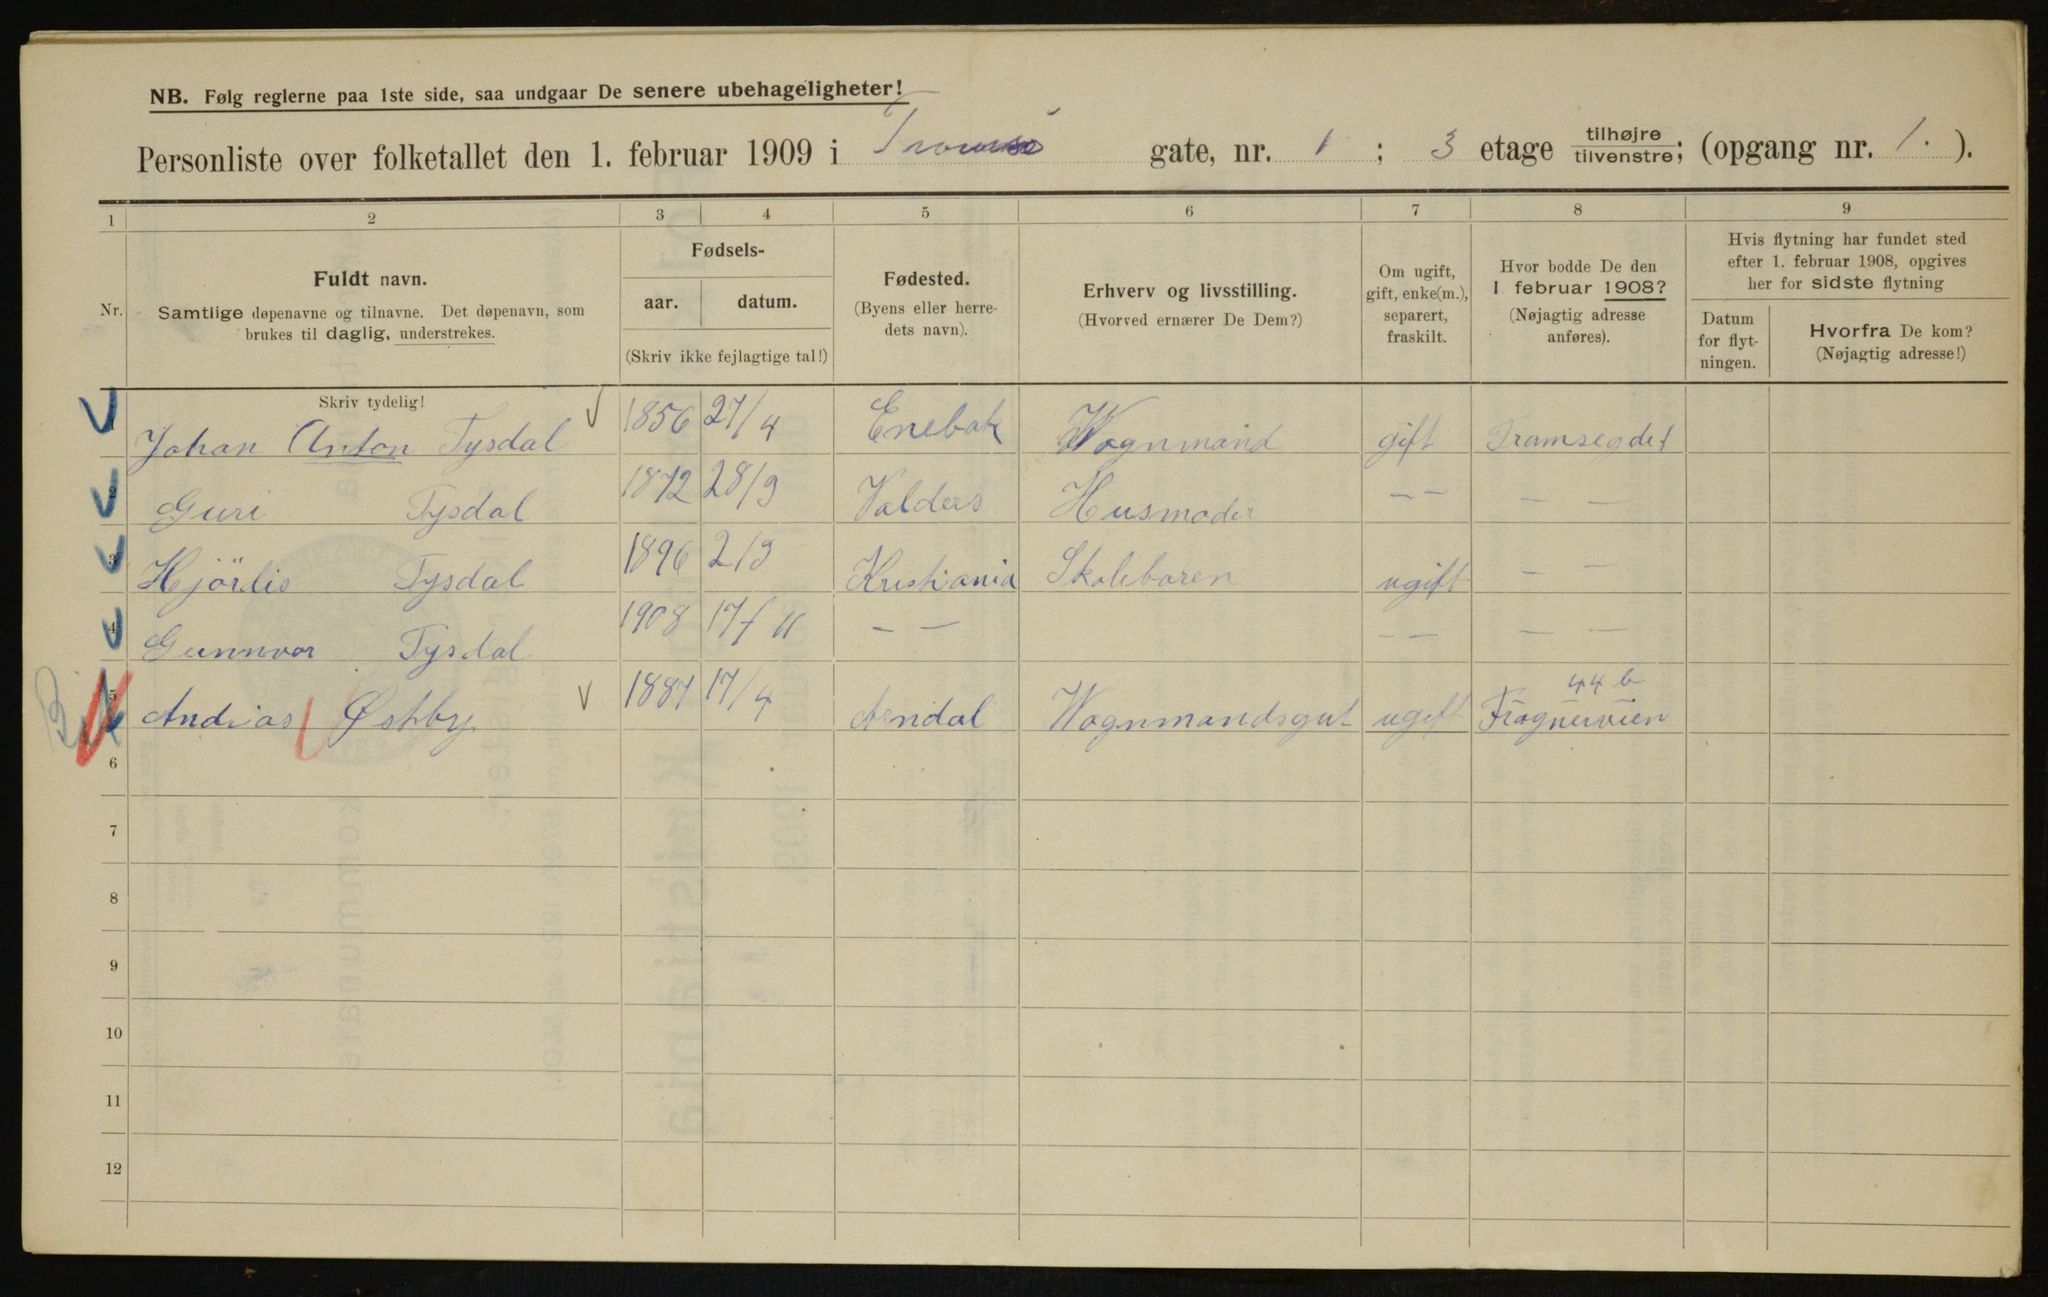 NB. Følg reglerne paa 1ste side, saa undgaar De senere ubehageligheter!
Personliste over folketallet den 1. februar 1909 i Tromsø gate, nr. 1 ; 3 etage tilhøjre tilvenstre; (opgang nr. 1. ).
1 2 3 4 5 6 7 8 9
Nr.
Fuldt navn.
Samtlige døpenavne og tilnavne. Det døpenavn, som
brukes til daglig, understrekes.
Skriv tydelig!
Fødsels-
aar. datum.
(Skriv ikke fejlagtige tal!)
Fødested.
(Byens eller herre-
dets navn).
Erhverv og livsstilling.
(Hvorved ernærer De Dem?)
Om ugift,
gift, enke(m.),
separert,
fraskilt.
Hvor bodde De den
1 februar 1908?
(Nøjagtig adresse
anføres).
Hvis flytning har fundet sted
efter 1. februar 1908, opgives
her for sidste flytning
Datum
for flyt-
ningen.
Hvorfra De kom?
(Nøjagtig adresse!)
Johan Anton Tysdal 1856 27/4 Enebak Wognmand gift Tramsegdet
2 Guri Tysdal 1872 28/9 Valders Husmoder — — — —
3 Hjördis Tysdal 1896 2/9 Kristiania Skolebaren ugift — —
4 Gunnvor Tysdal 1908 17/11 — — — — — —
5 Andrias Østby 1887 17/4 Arndal Wognmandsgut ugift Frognerveien 44 b
6
7
8
9
10
11
12